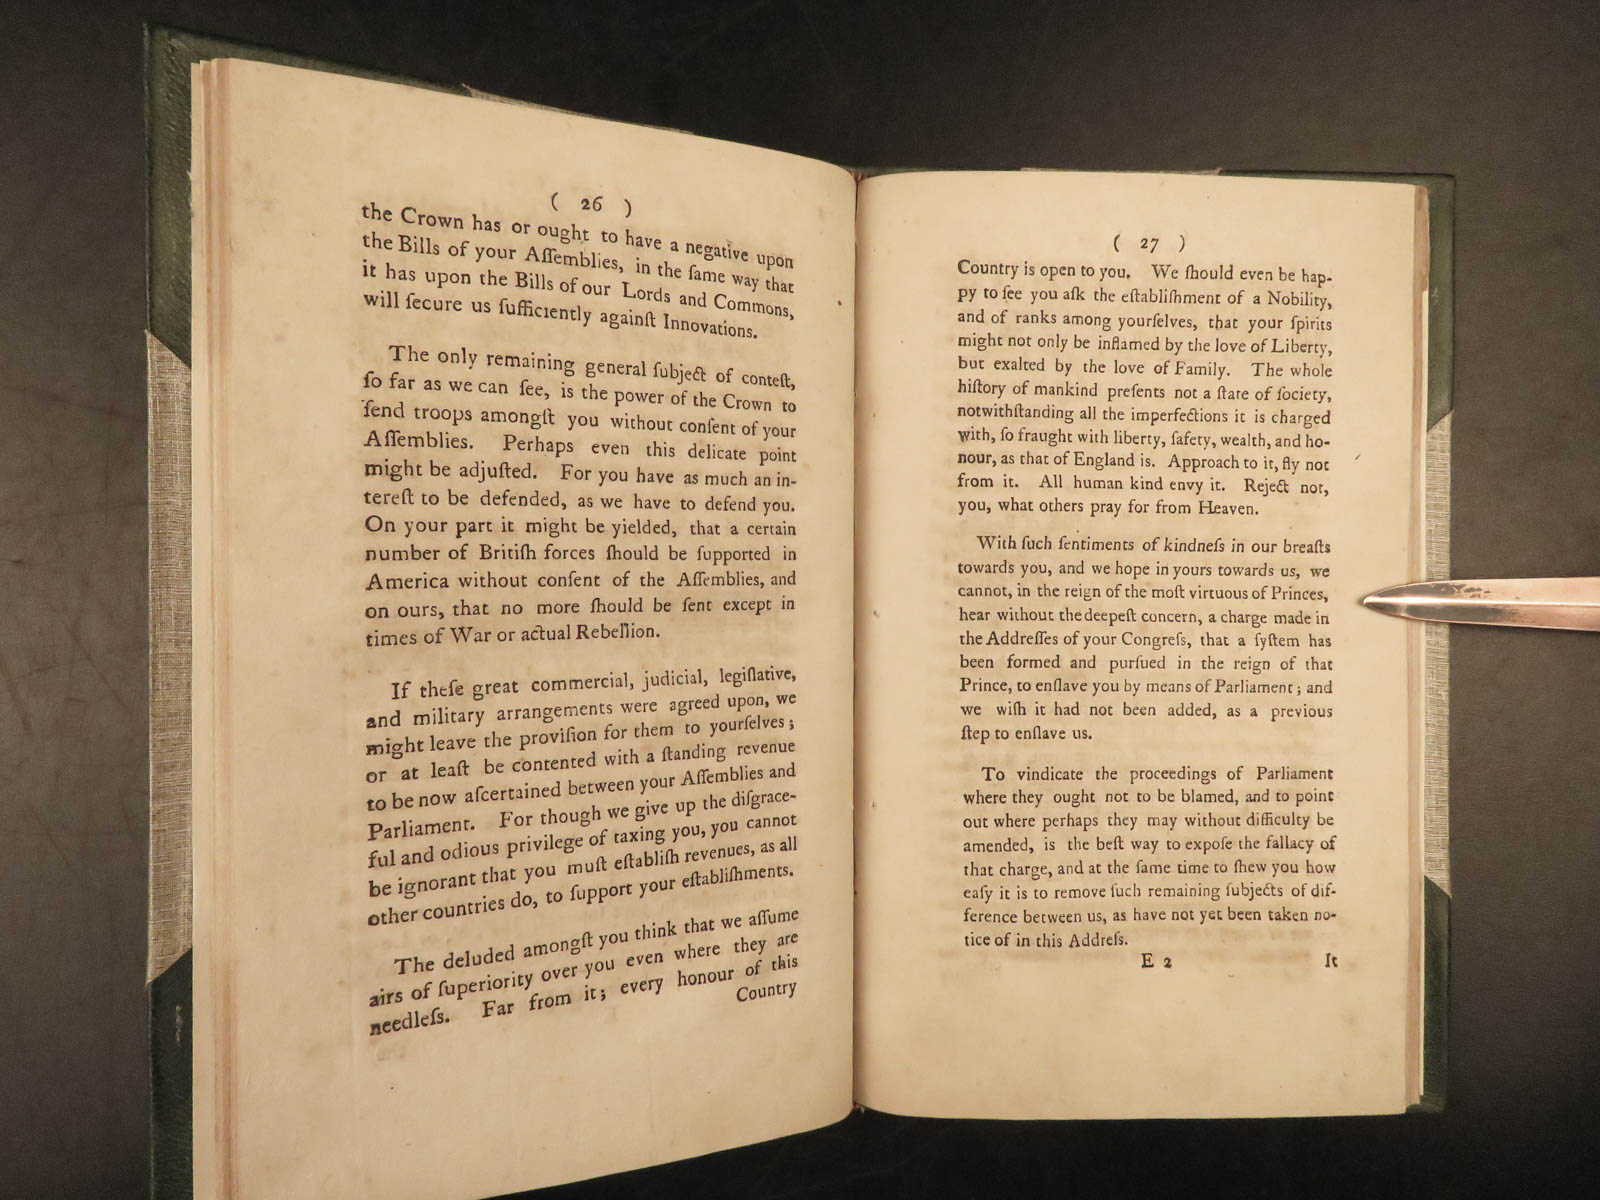 ( 26 )
the Crown has or ought to have a negative upon
the Bills of your Aſſemblies, in the ſame way that
it has upon the Bills of our Lords and Commons,
will ſecure us ſufficiently againſt Innovations.
The only remaining general ſubject of conteſt,
ſo far as we can ſee, is the power of the Crown to
ſend troops amongſt you without conſent of your
Aſſemblies. Perhaps even this delicate point
might be adjuſted. For you have as much an in-
tereſt to be defended, as we have to defend you.
On your part it might be yielded, that a certain
number of Britiſh forces ſhould be ſupported in
America without conſent of the Aſſemblies, and
on ours, that no more ſhould be ſent except in
times of War or actual Rebellion.
If theſe great commercial, judicial, legiſlative,
and military arrangements were agreed upon, we
might leave the proviſion for them to yourſelves;
or at leaſt be contented with a ſtanding revenue
to be now aſcertained between your Aſſemblies and
Parliament. For though we give up the diſgrace-
ful and odious privilege of taxing you, you cannot
be ignorant that you muſt eſtabliſh revenues, as all
other countries do, to ſupport your eſtabliſhments.
The deluded amongſt you think that we aſſume
airs of ſuperiority over you even where they are
needleſs. Far from it; every honour of this
Country
( 27 )
Country is open to you. We ſhould even be hap-
py to ſee you aſk the eſtabliſhment of a Nobility,
and of ranks among yourſelves, that your ſpirits
might not only be inflamed by the love of Liberty,
but exalted by the love of Family. The whole
hiſtory of mankind preſents not a ſtate of ſociety,
notwithſtanding all the imperfections it is charged
with, ſo fraught with liberty, ſafety, wealth, and ho-
nour, as that of England is. Approach to it, fly not
from it. All human kind envy it. Reject not,
you, what others pray for from Heaven.
With ſuch ſentiments of kindneſs in our breaſts
towards you, and we hope in yours towards us, we
cannot, in the reign of the moſt virtuous of Princes,
hear without the deepeſt concern, a charge made in
the Addreſſes of your Congreſs, that a ſyſtem has
been formed and purſued in the reign of that
Prince, to enſlave you by means of Parliament; and
we wiſh it had not been added, as a previous
ſtep to enſlave us.
To vindicate the proceedings of Parliament
where they ought not to be blamed, and to point
out where perhaps they may without difficulty be
amended, is the beſt way to expoſe the fallacy of
that charge, and at the ſame time to ſhew you how
eaſy it is to remove ſuch remaining ſubjects of dif-
ference between us, as have not yet been taken no-
tice of in this Addreſs.
E 2 It